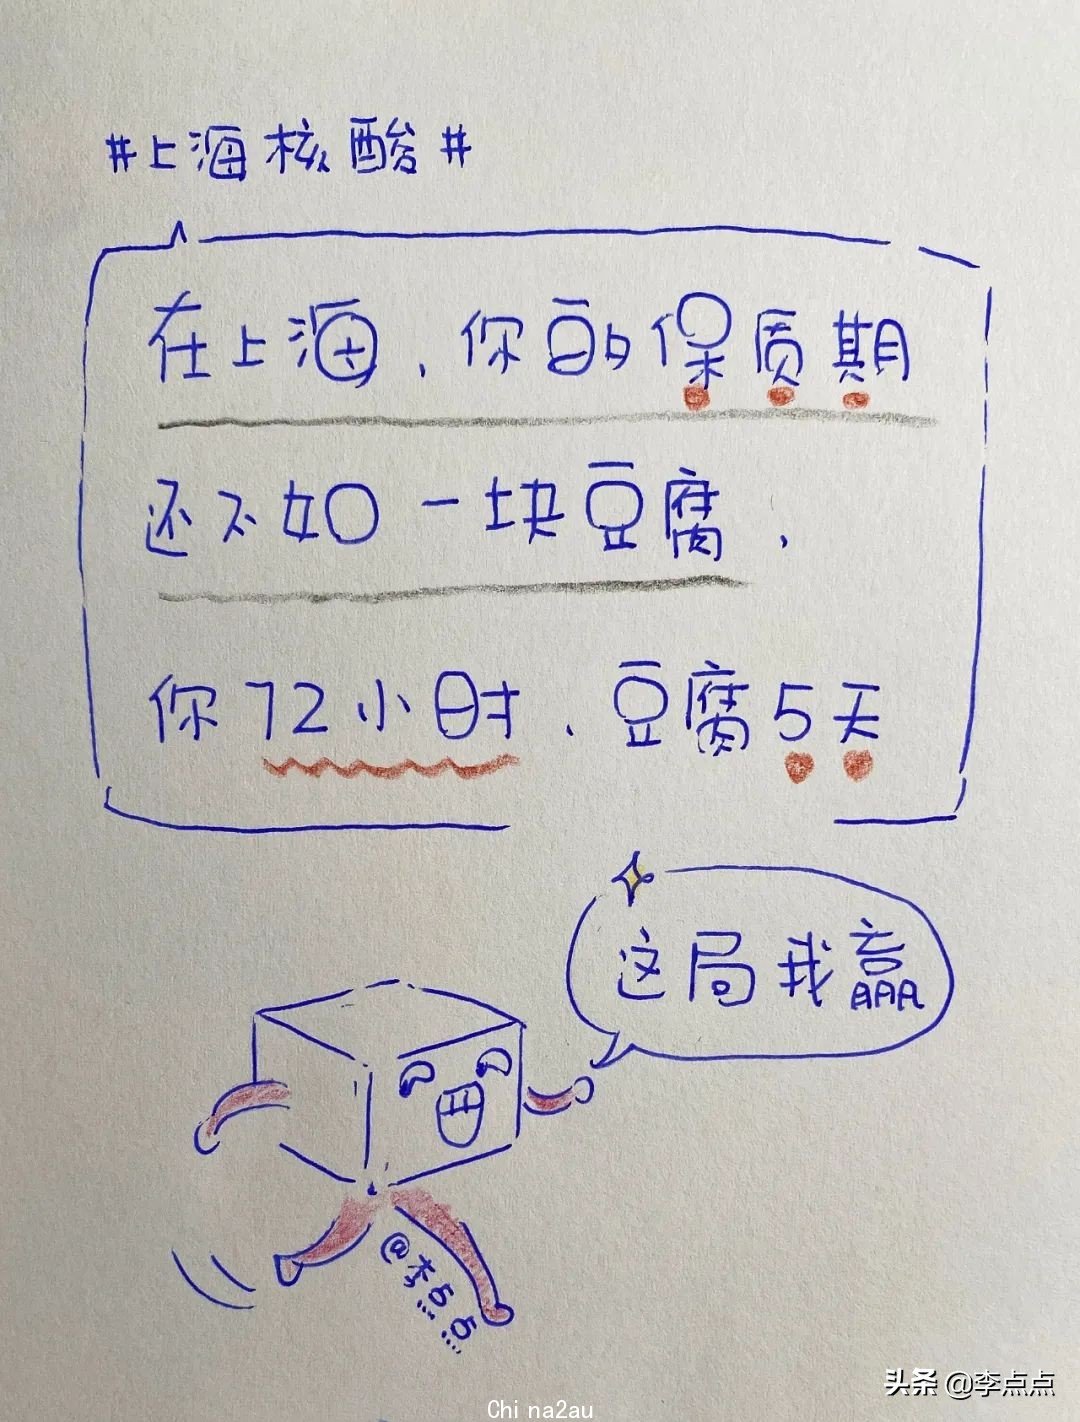 #上海核酸#
在上海，你的保质期
还不如一块豆腐，
你72小时，豆腐5天
这局我赢
@李点点
头条 @李点点
China2au